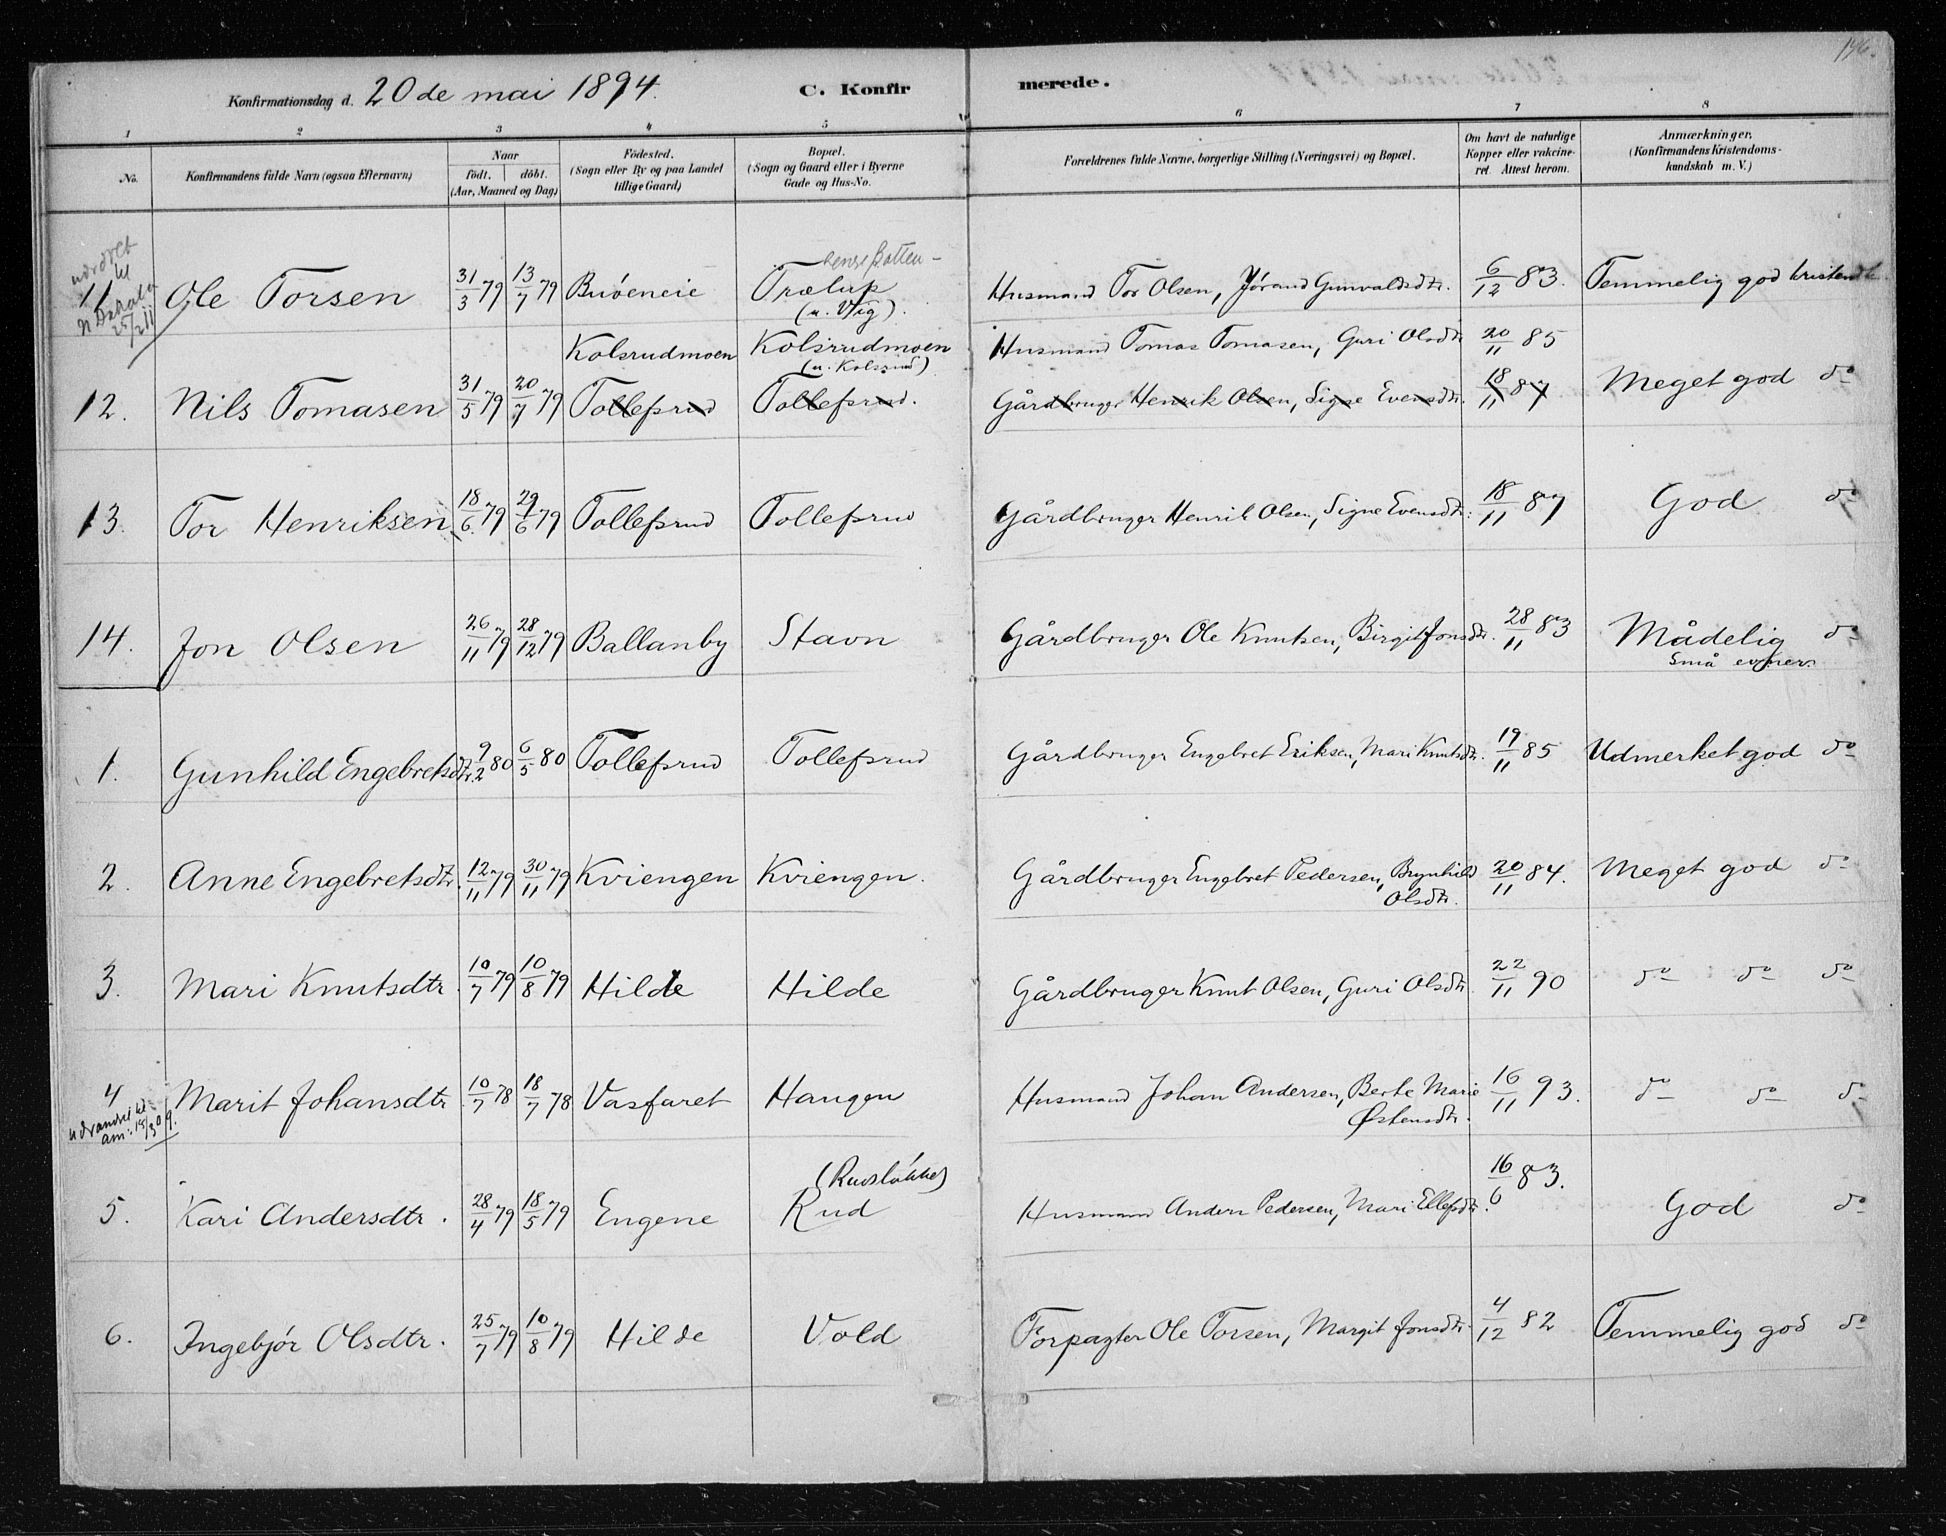 146.
Konfirmationsdag d. 20de mai 1894. C. Konfirmerede.
1 2 3 4 5 6 7 8
No. Konfirmandens fulde Navn (ogsaa Efternavn) Naar födt. döbt. (Aar, Maaned og Dag) Födested. (Sogn eller By og paa Landet tillige Gaard) Bopæl. (Sogn og Gaard eller i Byerne Gade og Hus-No. Forældrenes fulde Navne, borgerlige Stilling (Næringsvei) og Bopæl. Om havt de naturlige Kopper eller vakcineret. Attest herom. Anmærkninger. (Konfirmandens Kristendomskundskab m. V.)
11 Ole Torsen 31/3 79 13/7 79 Buóeneie Trælup (u. Vig). Husmand Tor Olsen, Jórand Gunvaldsdtr. 6/12 83. Temmelig god kristendk
til N Dakota 25/2 11
Kolsrudmoen Kolsrudmoen (u. Kolsrud) Husmand Tomas Tomasen, Guri Olsdtr 20/11 85
12. Nils Tomasen 31/5 79 20/7 79 Tollefsrud Tollefsrud. Gårdbruger Henrik Olsen, Signe Evensdtr. 18/11 87 Meget god do
13. Tor Henriksen 18/6 79 29/6 79 Tollefsrud Tollefsrud Gårdbruger Henrik Olsen, Signe Evensdtr. 18/11 87 God do
14. Jon Olsen 26/11 79 28/12 79 Ballanby Stavn Gårdbruger Ole Knutsen, Birgit Jonsdtr. 28/11 83 Mådelig do
små evner.
1. Gunhild Engebretsdtr. 9/2 80 6/5 80 Tollefsrud Tollefsrud Gårdbruger Engebret Eriksen, Mari Knutsdtr. 19/11 85 Udmerket god do
2. Anne Engebretsdtr. 12/11 79 30/11 79 Kviengen Kviengen. Gårdbruger Engebret Pedersen, Brynhild Olsdtr. 20/11 84. Meget god do
3. Mari Knutsdtr. 10/7 79 10/8 79 Hilde Hilde Gårdbruger Knut Olsen, Guri Olsdtr. 22/11 90 do do do
4 Marit Johansdtr 10/7 78 18/7 78 Vasfaret Haugen Husmand Johan Andersen, Berte Marie Østensdtr. 16/11 93. do do do
udvandr. til am:
(Rudsløkke)
5. Kari Andersdtr. 28/4 79 18/5 79 Engene Rud Husmand Anders Pedersen, Mari Ellefsdtr. 16/6 83. God do
6. Ingebjór Olsdtr. 25/7 79 10/8 79 Hilde Vold Forpagter Ole Torsen, Margit Jonsdtr. 4/12 82 Temmelig god do